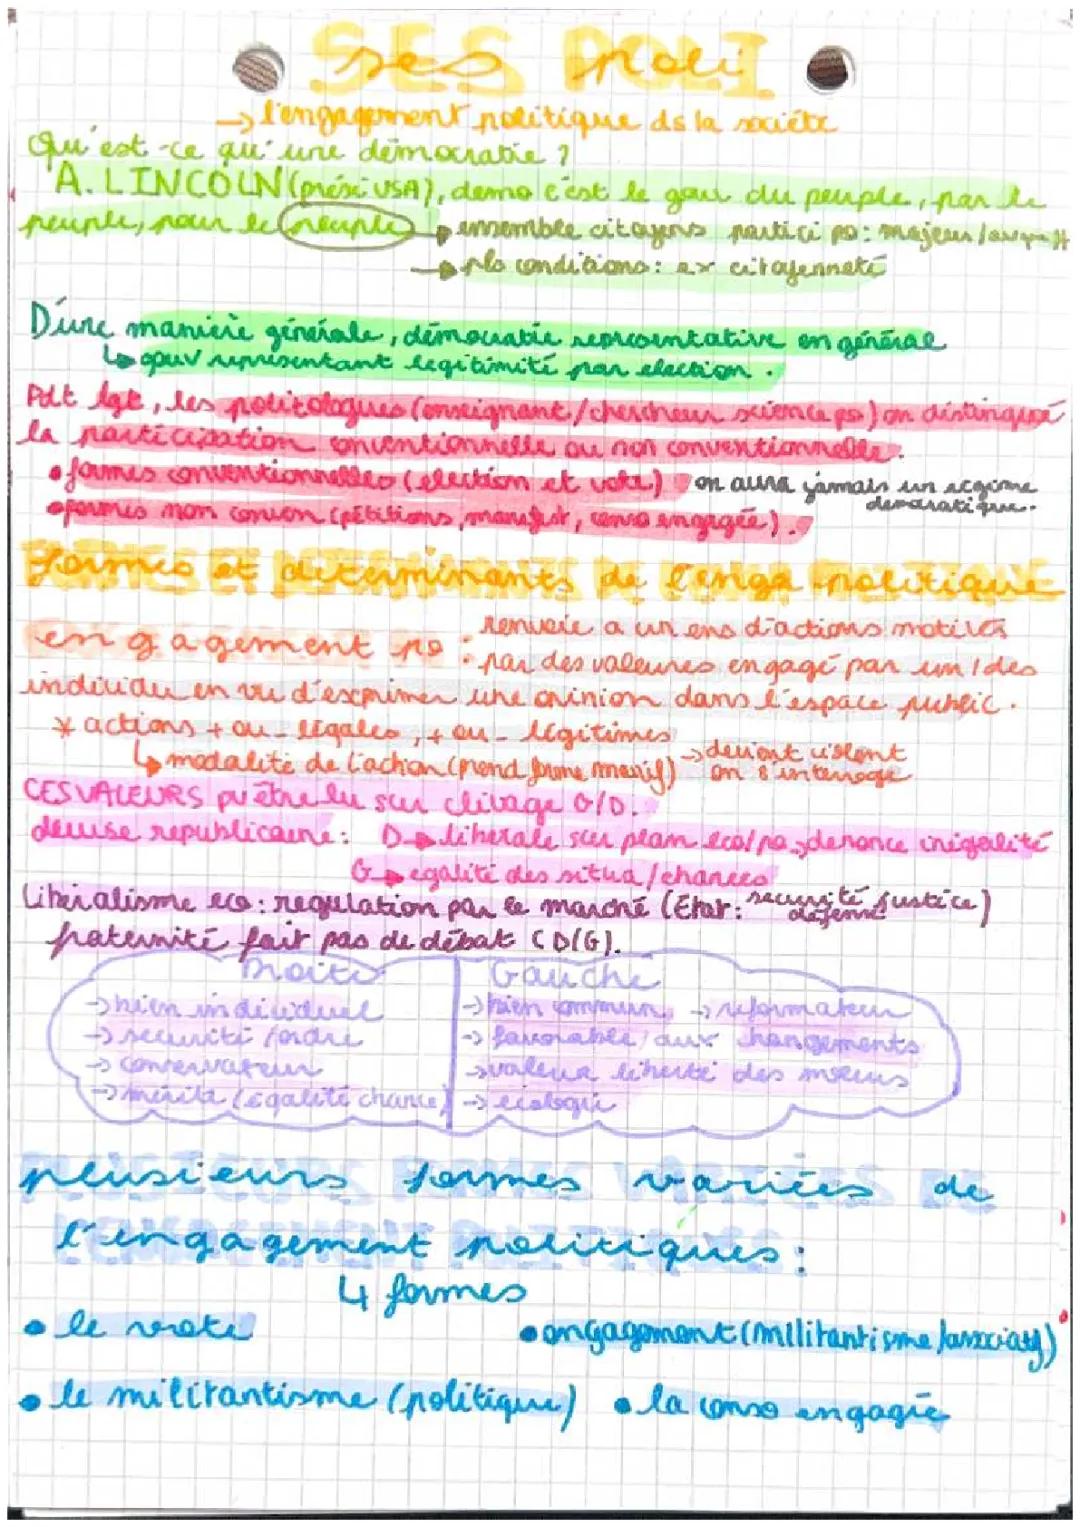 ses poli
→ l'engagement politique ds la société
Qu'est-ce qu'une démocratie ?
A. LINCOLN (prési USA), demo c'est le gouv du peuple, par le
peuple, pour le peuple → ensemble citoyens partici po: majeur /
→ plsconditions: ex citoyenneté
D'une manière générale, démocratie représentative en général
↳ gouv représentant legitimité par election.
Pdt lgt, les politologues (enseignant/chercheur science po) on distingué
la participation conventionnelle ou non conventionnelle.
• formes conventionnelles (election et vote) on aura jamais un regime
democratique.
• formes non conven (pétitions, manifest, conso engagée).
formes et determinants de l'enga politique
engagement po : renvoie a un ens d'actions motivés
par des valeures engagé par un/des
individu en vu d'exprimer une opinion dans l'espace public.
* actions + ou - légales, + ou - légitimes
↳ modalité de l'action (prend forme manif) → devient violent
on s'interroge
CES VALEURS pv être lu sur clivage G/D.
devise republicaine: D → liberale sur plan eco/po, denonce inégalité
G → egalité des situa/chances
Libéralisme eco: regulation par le marché (Etat: securité justice)
défense
fraternité fait pas de débat (D/G).
Droite
→ bien individuel
→ securité /ordre
→ conservateur
→ mérite (égalité chance)
Gauche
→ bien commun, → reformateur
→ favorable aux changements
→ valeur liberté des moeurs
→ écologie
plusieurs formes variées de
l'engagement politiques :
4 formes
• le vote
• engagement (militantisme /associatif)
• le militantisme (politique) • la conso engagée